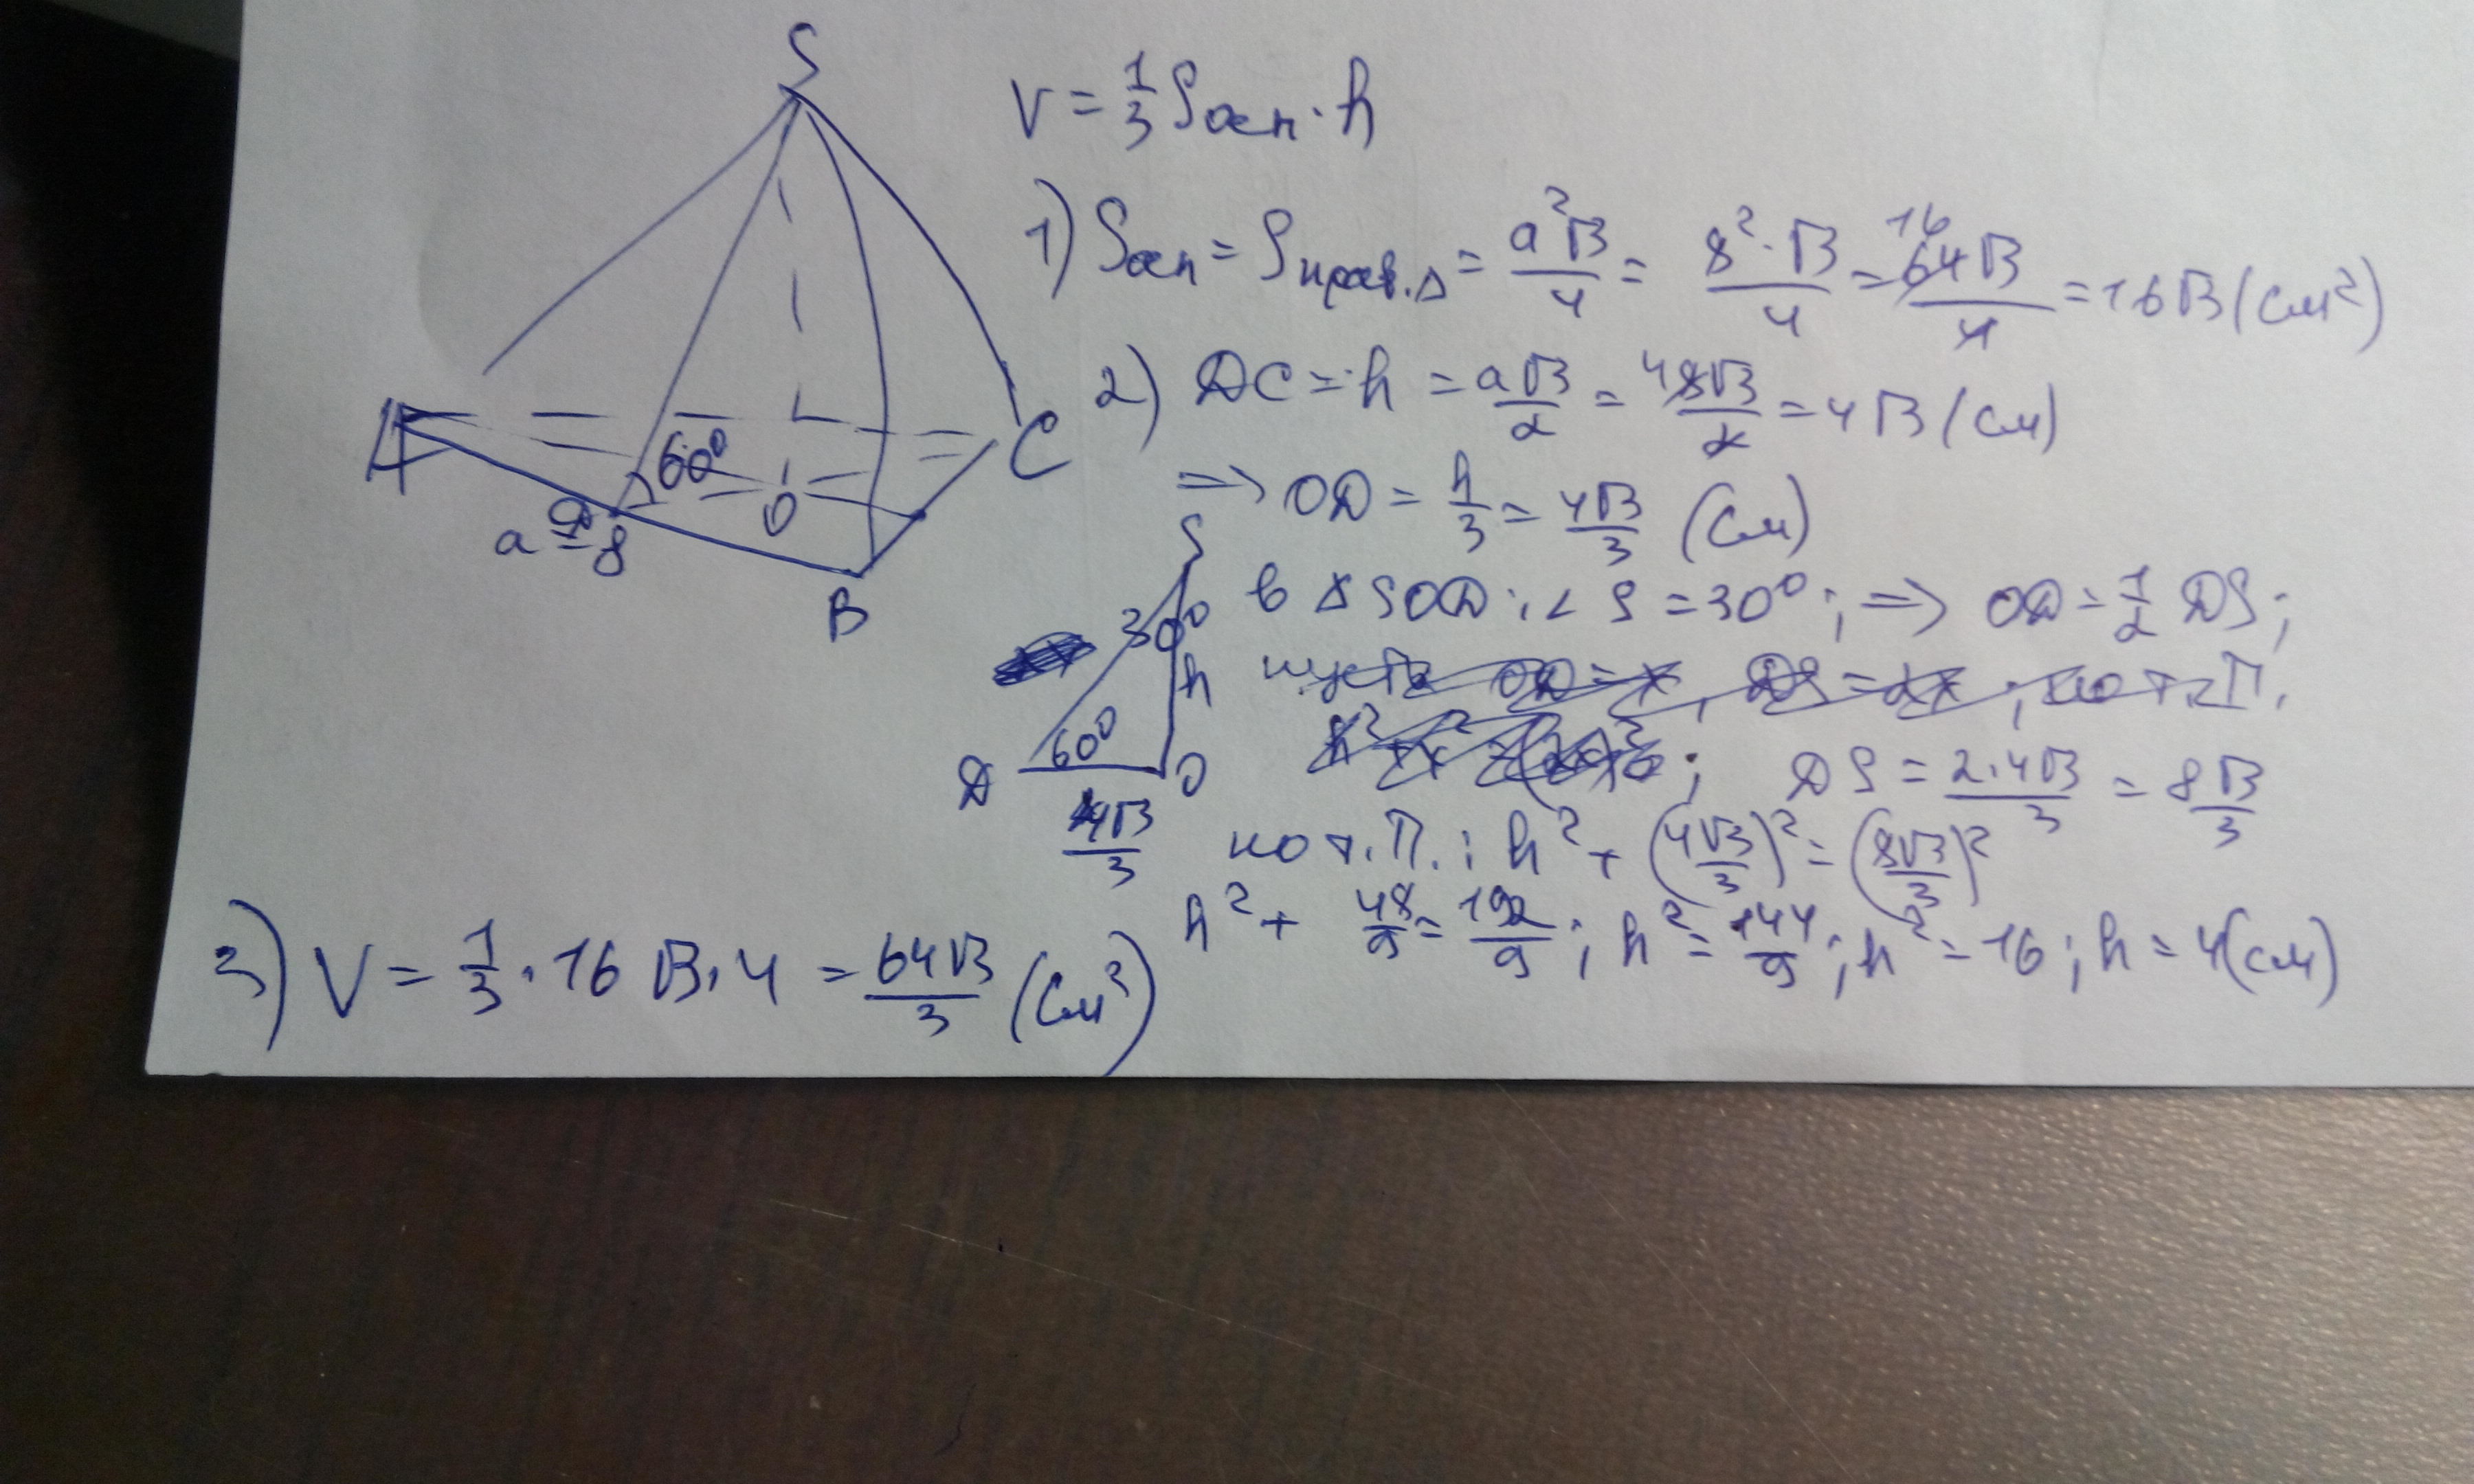 S
A
B
C
O
D
60⁰
a = 8
V = 1/3 Sосн · h
1) Sосн = Sправ.Δ = a²√3/4 = 8²·√3/4 = 64√3/4 = 16√3 (см²)
16
2) DC = h = a√3/2 = 8√3/2 = 4√3 (см)
4
=> OD = h/3 = 4√3/3 (см)
S
30⁰
h
60⁰
D
O
4√3/3
в Δ SOD : ∠ S = 30⁰ ; => OD = 1/2 DS ;
пусть OD = x, DS = 2x ; по т. П.
DS = 2·4√3/3 = 8√3/3
по т. П. : h² + (4√3/3)² = (8√3/3)²
h² + 48/9 = 192/9 ; h² = 144/9 ; h² = 16 ; h = 4 (см)
3) V = 1/3 · 16√3 · 4 = 64√3/3 (см³)